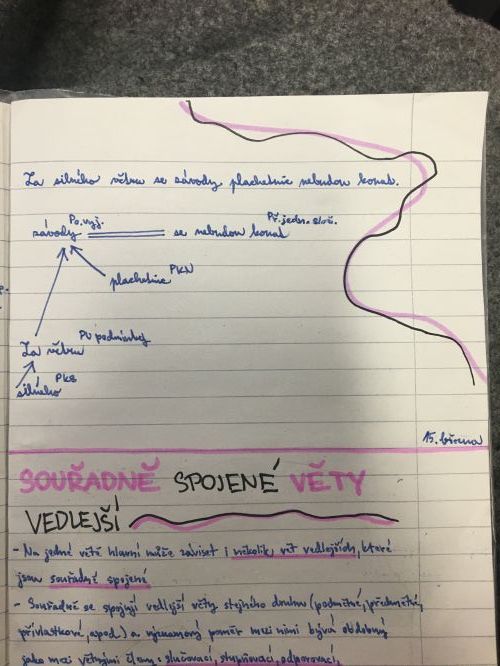 Za silného větru se závody plachetnic nebudou konat.
Po. vyj. Př. jedn. slož.
závody se nebudou konat
PKN
plachetnic
PU podmínky
Za větru
PKS
silného
15. března
SOUŘADNĚ SPOJENÉ VĚTY
VEDLEJŠÍ
- Na jedné větě hlavní může záviset i několik vět vedlejších, které
jsou souřadně spojené
- Souřadně se spojují vedlejší věty stejného druhu (podmětné, předmětné,
přívlastkové, apod.) a významový poměr mezi nimi bývá obdobný
jako mezi větnými členy: slučovací, stupňovací, odporovací,